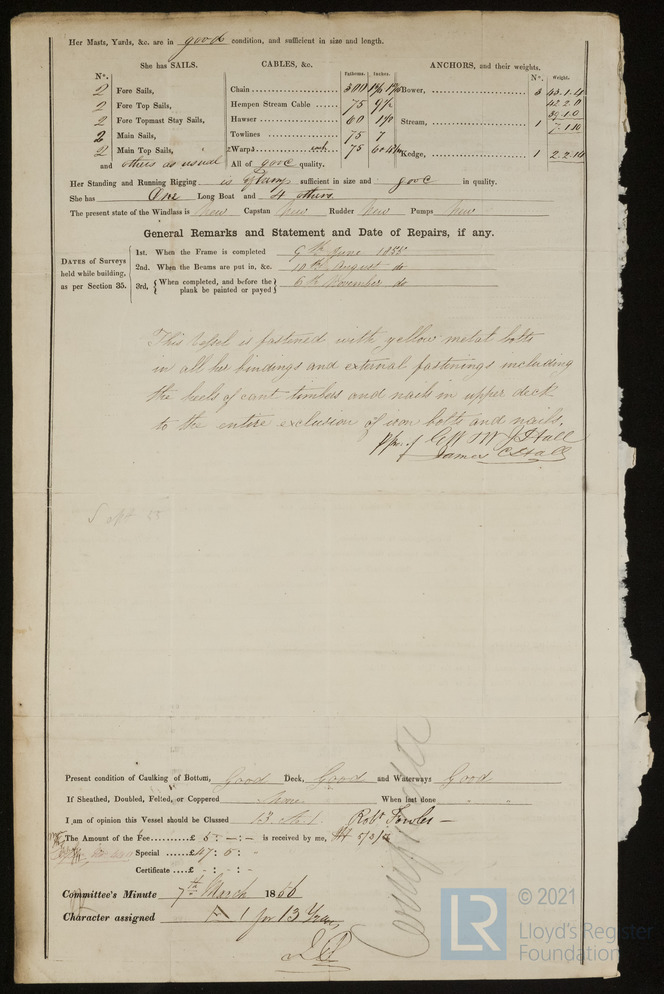 Her Masts, Yards, &c. are in good condition, and sufficient in size and length.
She has SAILS.
N°.
2 Fore Sails,
2 Fore Top Sails,
2 Fore Topmast Stay Sails,
2 Main Sails,
2 Main Top Sails,
and others as usual
CABLES, &c.
Fathoms. Inches.
Chain 300
Hempen Stream Cable 75 9½
Hawser 60
Towlines 75 7
Warps 75
All of good quality.
ANCHORS, and their weights.
N°. Weight.
Bower, 3 43.1.4
42.2.0
39.1.0
Stream, 1 7.1.10
Kedge, 1 2.2.14
Her Standing and Running Rigging is sufficient in size and good in quality.
She has One Long Boat and 4 others
The present state of the Windlass is New Capstan New Rudder New Pumps New
General Remarks and Statement and Date of Repairs, if any.
DATES of Surveys held while building, as per Section 35.
1st. When the Frame is completed 9th June 1855
2nd. When the Beams are put in, &c. 10th August do
3rd, When completed, and before the plank be painted or payed 6th November do
This Vessel is fastened with yellow metal bolts
in all her bindings and external fastenings including
the heels of cant timbers and nails in upper deck
to the entire exclusion of iron bolts and nails.
Hall
James Hall
Sept
Present condition of Caulking of Bottom, Good Deck, Good and Waterways Good
If Sheathed, Doubled, Felted, or Coppered When last done
I am of opinion this Vessel should be Classed 13 A 1 Robt Fowler
The Amount of the Fee £ 5 : - : - is received by me,
Special £47 : 0 : -
Certificate £ - : - : -
Committee's Minute 7th March 1856
Character assigned A 1 for 13 Years
© 2021
LR
Lloyd's Register
Foundation